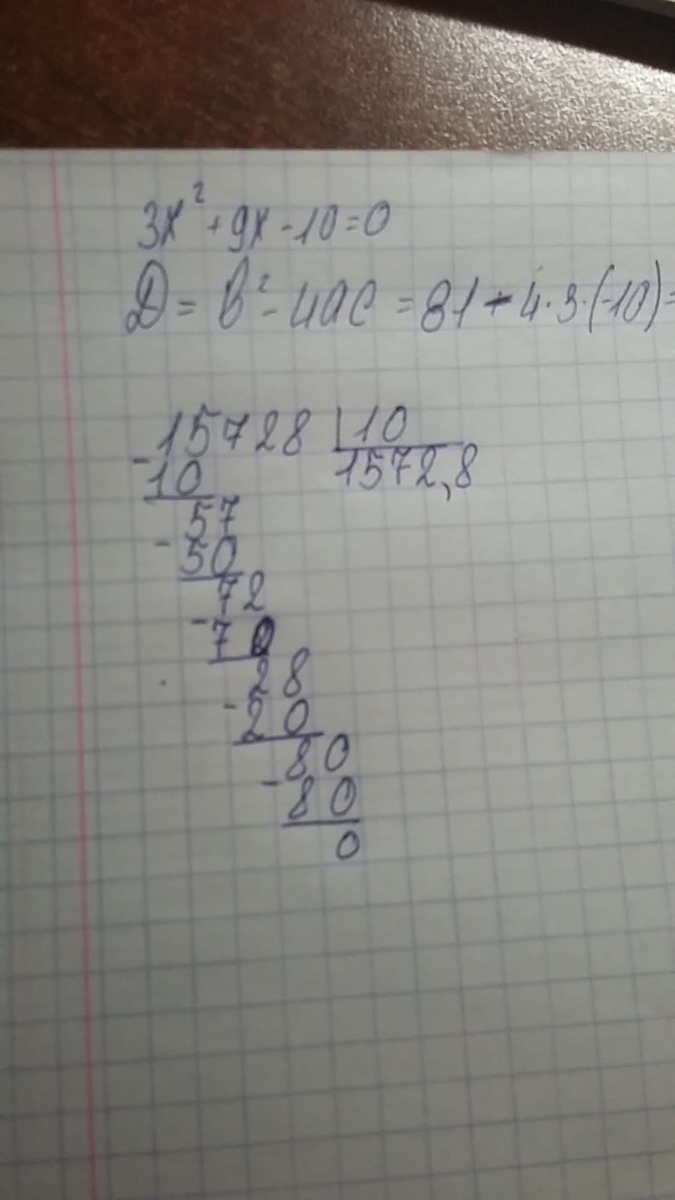 3x² + 9x - 10 = 0
D = b² - 4ac = 81 - 4 · 3 · (-10) =
-15728 | 10
10 1572,8
57
-50
72
-70
28
-20
80
-80
0